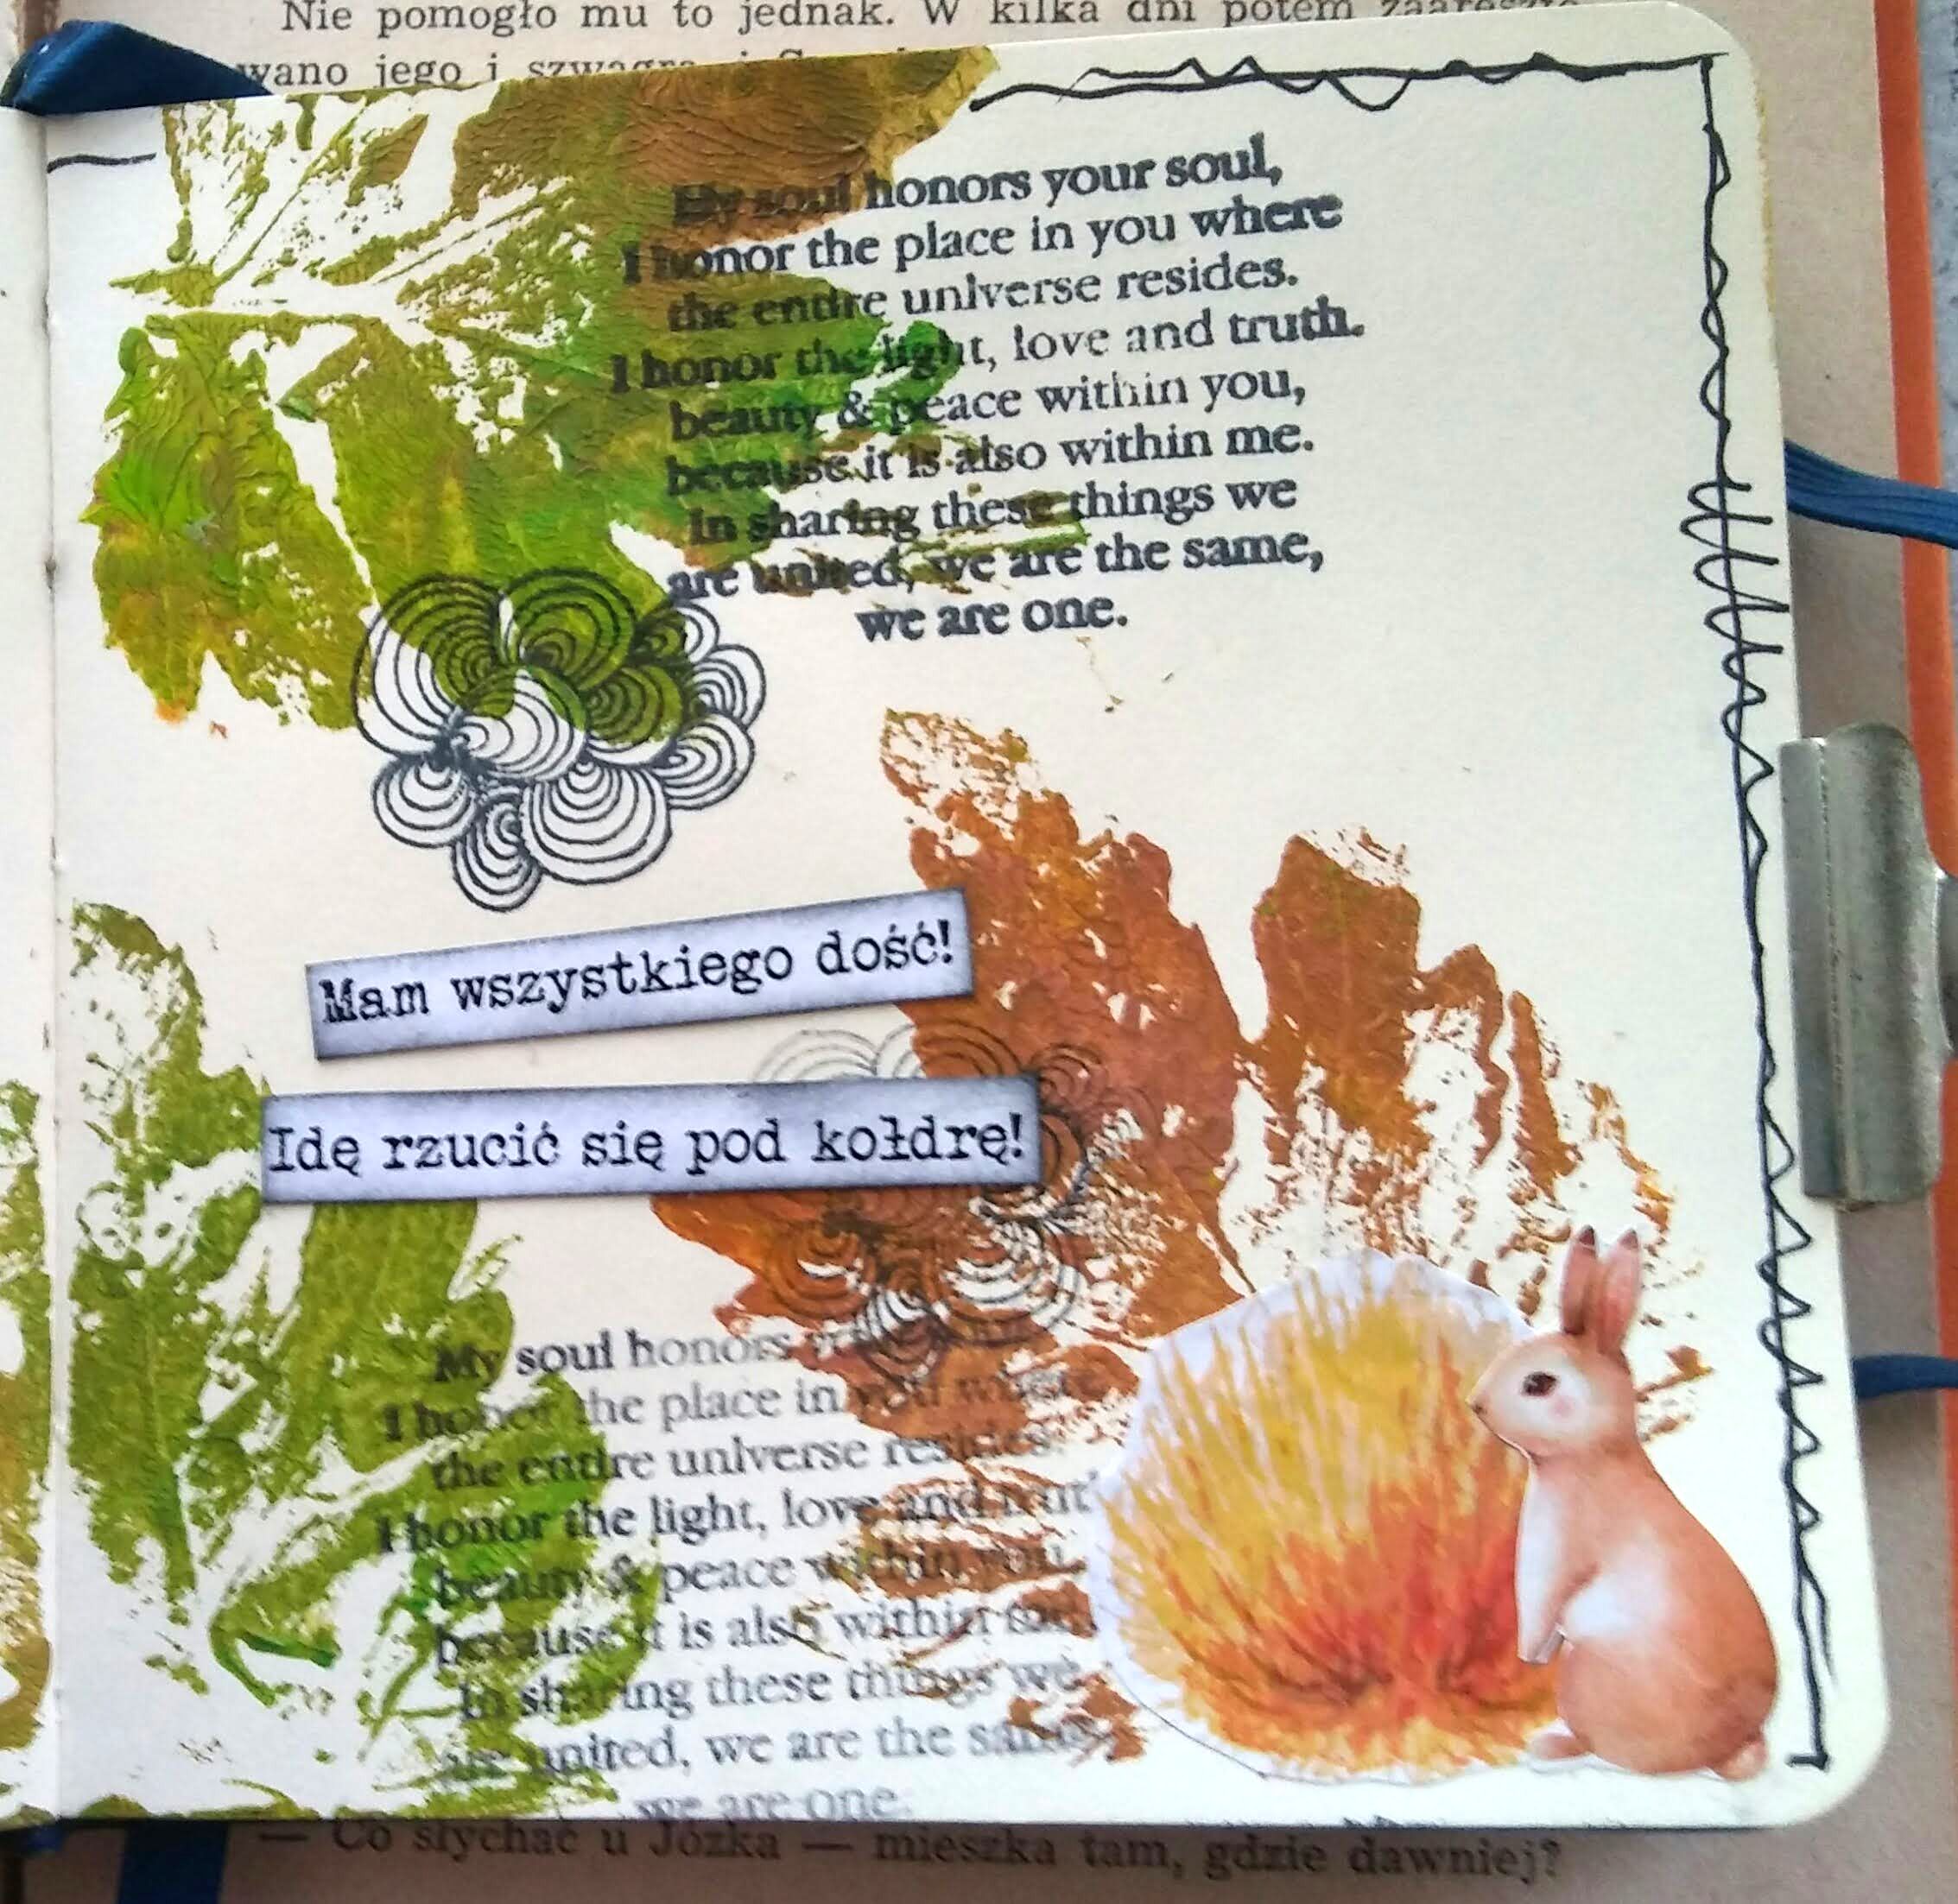 Nie pomogło mu to jednak. W kilka dni potem
wano jego i
My soul honors your soul,
I honor the place in you where
the entire universe resides.
I honor the light, love and truth.
beauty & peace within you,
because it is also within me.
In sharing these things we
are united, we are the same,
we are one.
Mam wszystkiego dość!
Idę rzucić się pod kołdrę!
My soul honors
I honor the place in you where
the entire universe resides
I honor the light, love and
beauty & peace within you,
because it is also within
In sharing these things we
are united, we are the same
we are one.
— Co słychać u Józka — mieszka tam, gdzie dawniej?